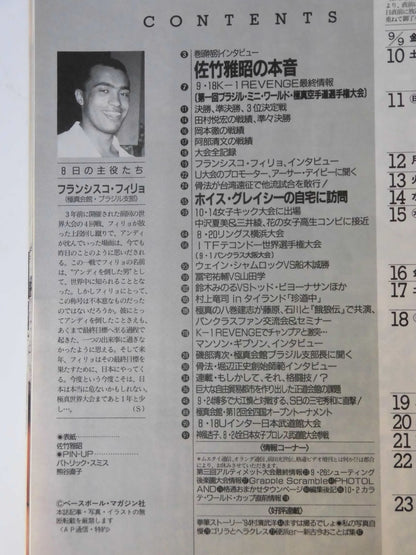 CONTENTS
巻頭特別インタビュー
佐竹雅昭の本音
9・18K-1 REVENGE最終情報
[第一回ブラジル・ミニ・ワールド・極真空手道選手権大会]
決勝、準決勝、3位決定戦
田村悦宏の戦績、準々決勝
岡本徹の戦績
阿部清文の戦績
大会全記録
フランシスコ・フィリォ、インタビュー
U大会のプロモーター、アーサー・デイビーに聞く
骨法が台湾遠征で他流試合を敢行!
ホイス・グレイシーの自宅に訪問
10・14女子キック大会に出場
中沢夏美&三井綾、花の女子高生コンビに接近
8・20リングス横浜大会
ITFテコンドー世界選手権大会
(9・1パンクラス大阪大会)
ウェイン・シャムロックVS船木誠勝
冨宅祐輔VS山田学
鈴木みのるVSトッド・ビョーナサンほか
村上竜司 in タイランド「珍道中」
極真の八巻建志が藤原、石川と「餓狼伝」で共演、
パンクラスファン交流会&セミナー
K-1 REVENGEでチャンプアと激突…
マンソン・ギブソン、インタビュー
磯部清次・極真会館ブラジル支部長に聞く
骨法・堀辺正史創始師範インタビュー
連載・もしかして、それ、格闘技!?
巨大な自由貿易都市を作り出した正道会館の課題
9・24博多で大江慎と対戦する、SBの三宅秀和に直撃!
極真会館・第12回全四国オープントーナメント
8・18Uインター日本武道館大会
神風杏子、8・24全日本女子プロレス武道館大会参戦
〈情報コーナー〉
第三回アルティメット大会最終情報
9・26シューティング
後楽園大会情報
Grapple Scramble
PHOTOL
AND
格通おまかせタウンページ
編集後記
10・2カラ
テ・ワールド・カップ直前情報
〈好評連載〉
拳筆ストーリー'94
村濱武洋
ますは揚るでしょ
私の写真自
慢
ゴリラとヘラクレス
8日の主役たち
フランシスコ・フィリォ
(極真会館・ブラジル支部)
3年前に開催された前回の世
界大会の4回戦、フィリォが放
った左回し蹴りで、アンディ
が沈んでいった場面は、今でも
昨日のことのように思いださ
れる。この一戦でフィリォの名前
は、“アンディを倒した男”とし
て、世界中に知られることとな
った。しかしフィリォにとって、
この称号は不本意なものだった
のではないだろうか。彼にとっ
てアンディを倒したことさえも、
あくまで最終目標へ至る過程で
起きた、一つの出来事に過ぎな
かったように思える。そして来
年、フィリォはその最終目標を
果たすために、日本にやってく
る。今度という今度こそは、日
本は本当に危ないかもしれない。
極真世界大会まであと1年と少
し…。(S)
●表紙
佐竹雅昭
●PIN-UP
パトリック・スミス
熊谷貴子
©ベースボール・マガジン社
本誌記事・写真・イラストの無
断転載を厳禁します
(AP通信・特約)
9/9 金
10 土
11
12
13
14
15
16
17
18
19
20
21
22
23